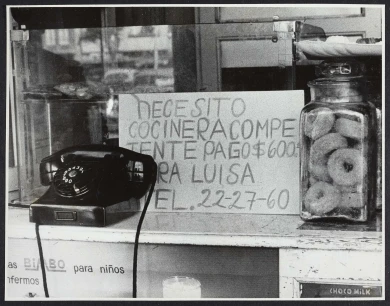 NECESITO
COCINERA COMPE
TENTE PAGO $600.
RA LUISA
TEL. 22-27-60
as BIMBO para niños
nfermos
CHOCO MILK